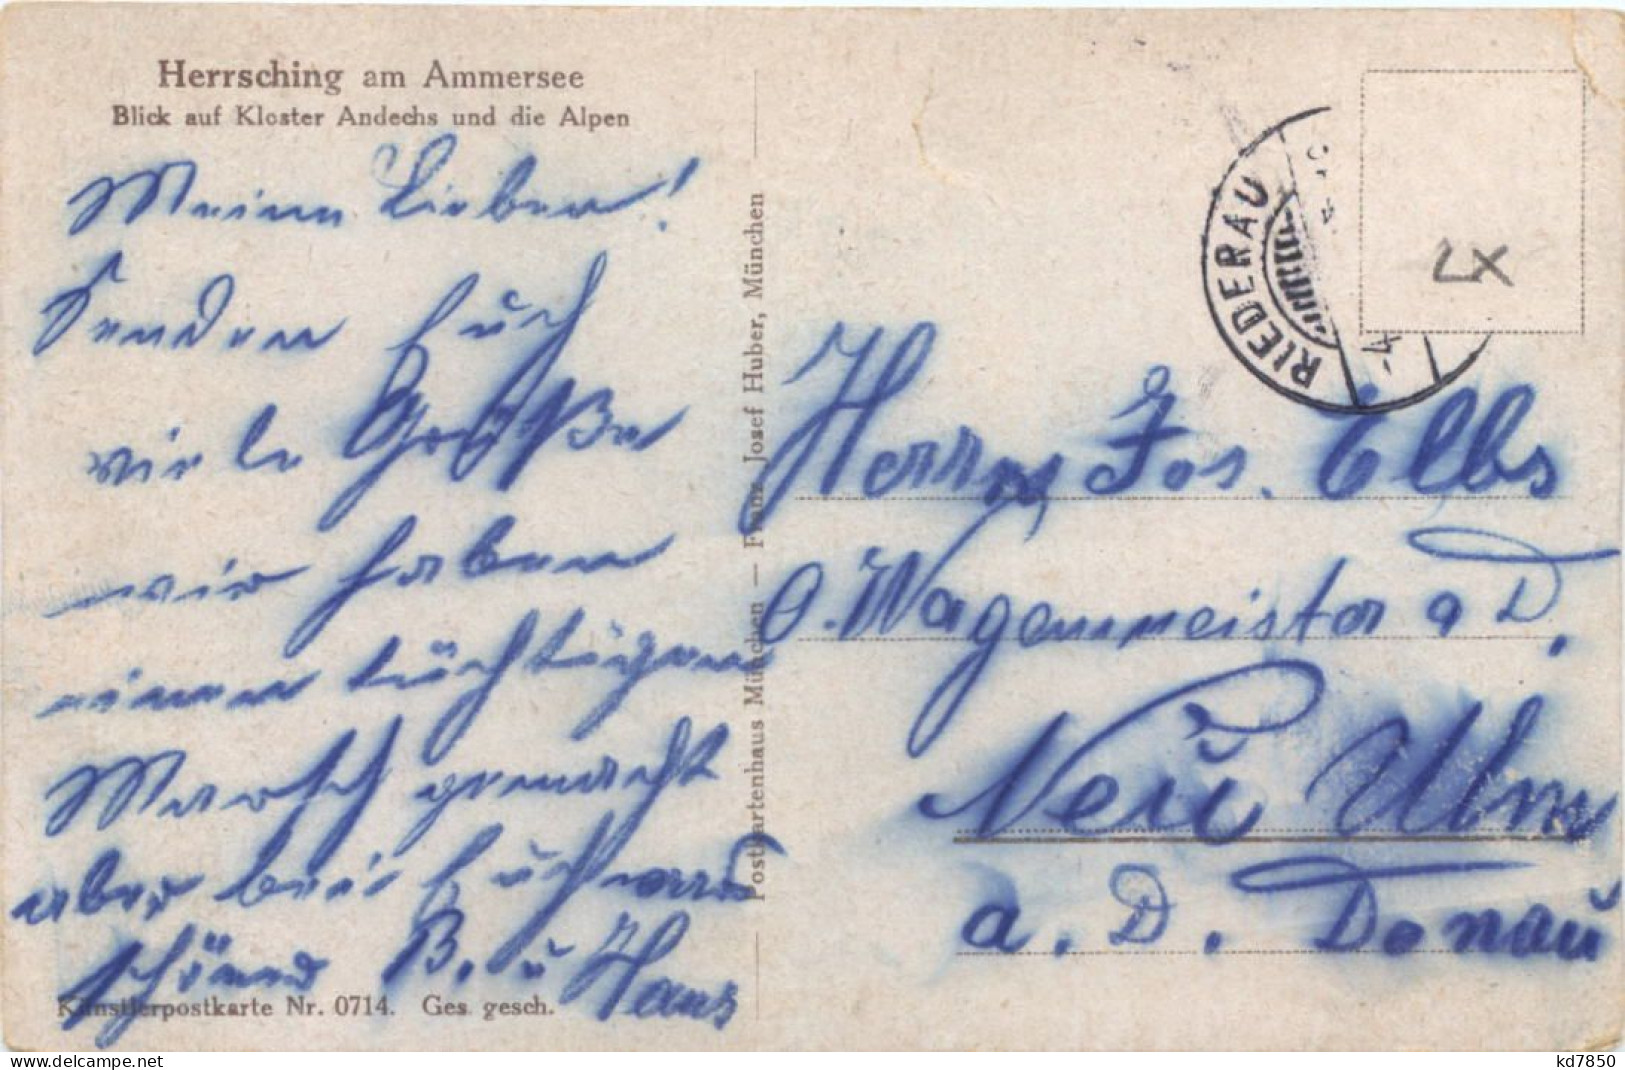 Herrsching am Ammersee
Blick auf Kloster Andechs und die Alpen
Meine Lieben!
Senden Euch
viele Grüße
wir haben
einen tüchtigen
Marsch gemacht
aber bei Euch
B. u Hans
Künstlerpostkarte Nr. 0714. Ges. gesch.
Postkartenhaus München — Franz Josef Huber, München
RIEDERAU
Herrn Jos. Elbs
O. Wagenmeister a D.
Neu Ulm
a. D. Donau
delcampe.net
kd7850